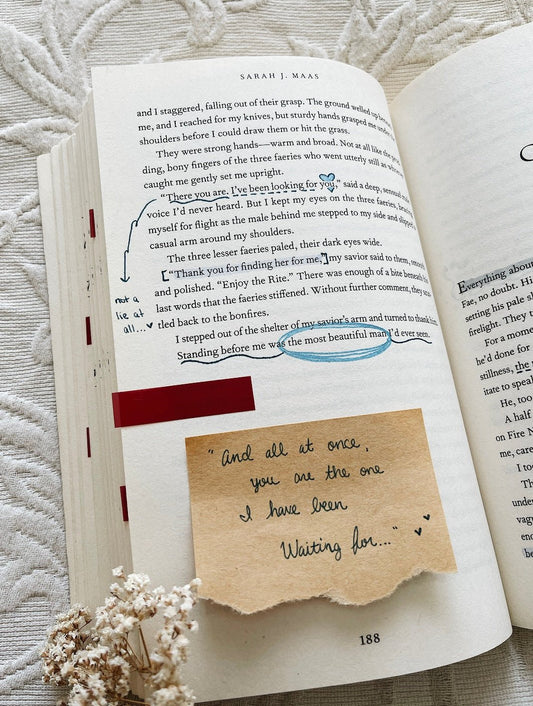 SARAH J. MAAS
and I staggered, falling out of their grasp. The ground welled up
me, and I reached for my knives, but sturdy hands grasped me
shoulders before I could draw them or hit the grass.
They were strong hands—warm and broad. Not at all like the
ding, bony fingers of the three faeries who went utterly still as
caught me gently set me upright.
"There you are. I've been looking for you," said a deep, sensual
voice I'd never heard. But I kept my eyes on the three faeries,
myself for flight as the male behind me stepped to my side and
casual arm around my shoulders.
The three lesser faeries paled, their dark eyes wide.
["Thank you for finding her for me,"] my savior said to them,
and polished. "Enjoy the Rite." There was enough of a bite
last words that the faeries stiffened. Without further comment, they
tled back to the bonfires.
I stepped out of the shelter of my savior's arm and turned to thank
Standing before me was the most beautiful man I'd ever seen.
not a
lie at
all...
"And all at once,
you are the one
I have been
Waiting for..."
188
Everything about
Fae, no doubt. His
setting his pale
firelight. They
For a mome
he'd done for
stillness, the
itate to speak
He, too
A half
on Fire N
me, care
I to
Th
unde
vag
eno
be